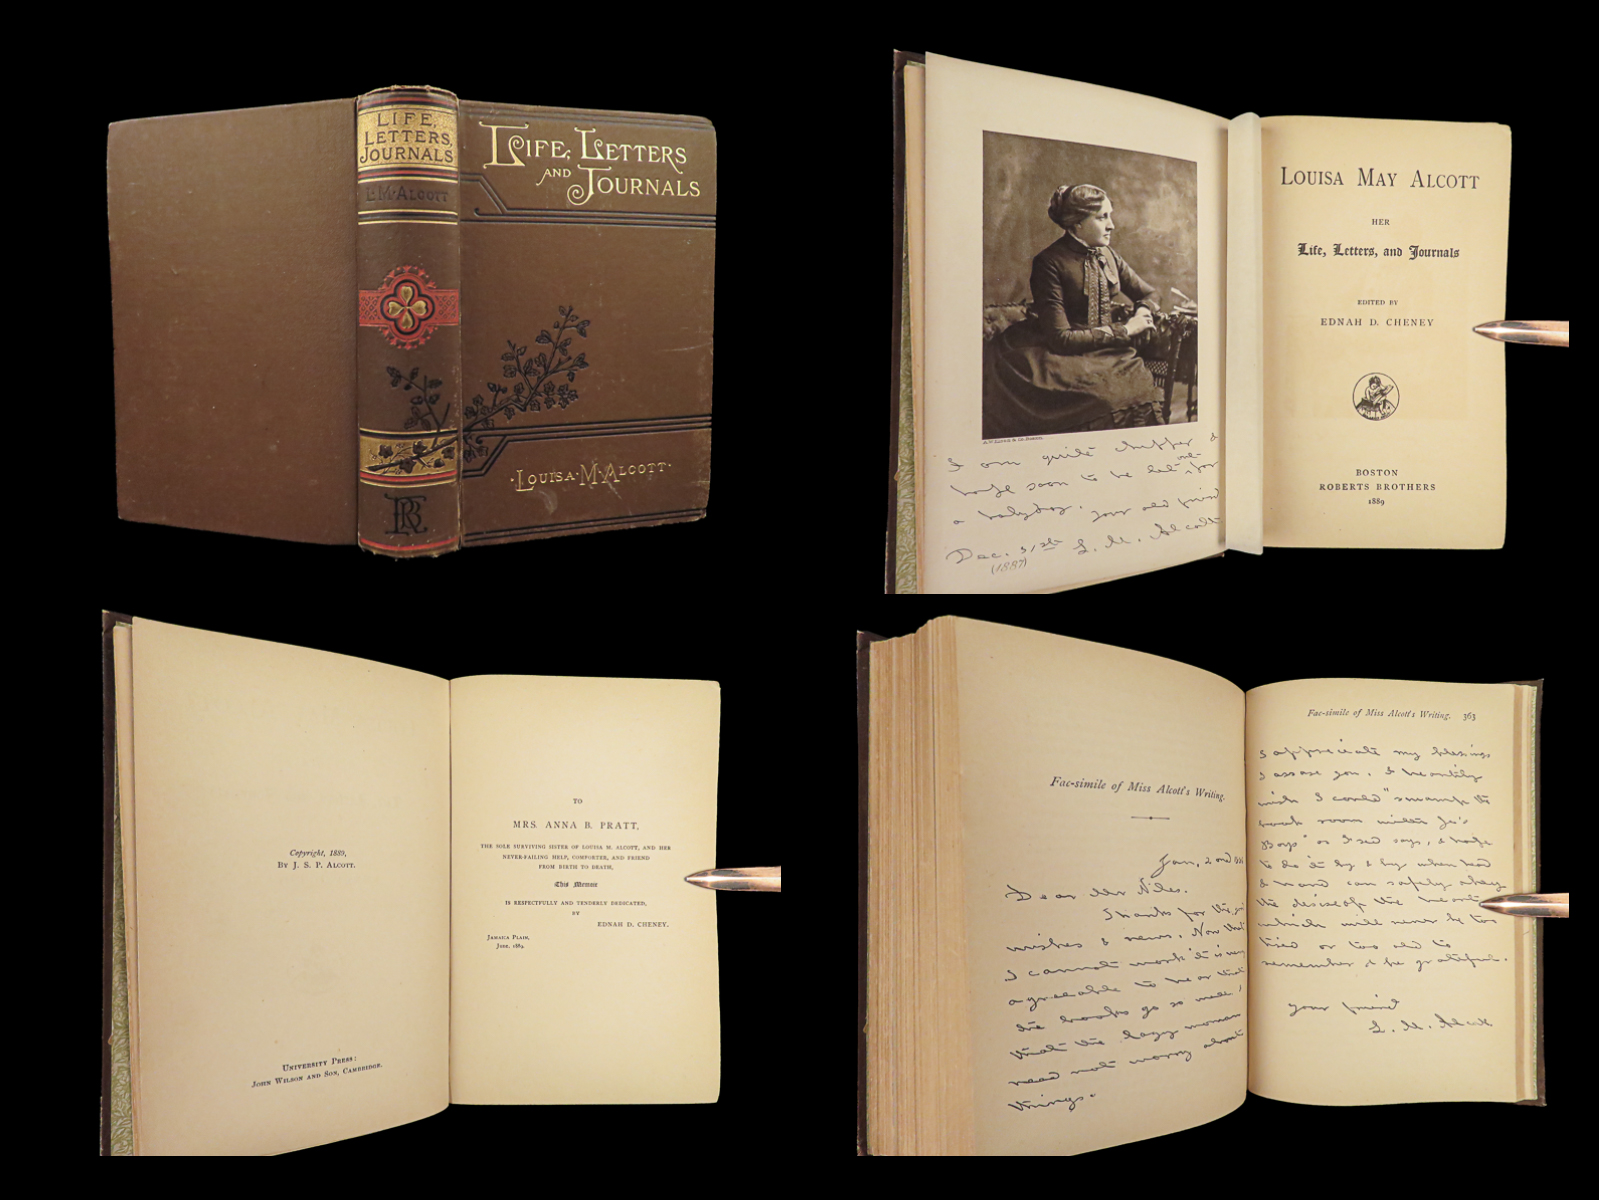 LIFE,
LETTERS,
JOURNALS
L·M·ALCOTT
RB
LIFE, LETTERS
AND JOURNALS
·LOUISA·M·ALCOTT·
I am quite chipper &
hope soon to be let out for
a holyday. Your old friend
Dec. 31st L. M. Alcott
(1887)
LOUISA MAY ALCOTT
HER
Life, Letters, and Journals
EDITED BY
EDNAH D. CHENEY
BOSTON
ROBERTS BROTHERS
1889
Copyright, 1889,
BY J. S. P. ALCOTT.
UNIVERSITY PRESS:
JOHN WILSON AND SON, CAMBRIDGE.
TO
MRS. ANNA B. PRATT,
THE SOLE SURVIVING SISTER OF LOUISA M. ALCOTT, AND HER
NEVER-FAILING HELP, COMFORTER, AND FRIEND
FROM BIRTH TO DEATH,
This Memoir
IS RESPECTFULLY AND TENDERLY DEDICATED,
BY
EDNAH D. CHENEY.
JAMAICA PLAIN,
JUNE, 1889.
Fac-simile of Miss Alcott's Writing.
Jan, 2nd
Dear Mr Niles.
Thanks for the good
wishes & news. Now that
I cannot work it is very
agreeable to hear that
the books go so well,
that the lazy woman
need not worry about
things.
Fac-simile of Miss Alcott's Writing. 363
I appreciate my blessings
I assure you. I heartily
wish I could "swamp the
book room with Jo's
Boys" as Fred says, & hope
to do it by & by when head
& hand can safely obey
the desire of the heart
which will never be too
tired or too old to
remember & be grateful.
Your friend
L. M. Alcott